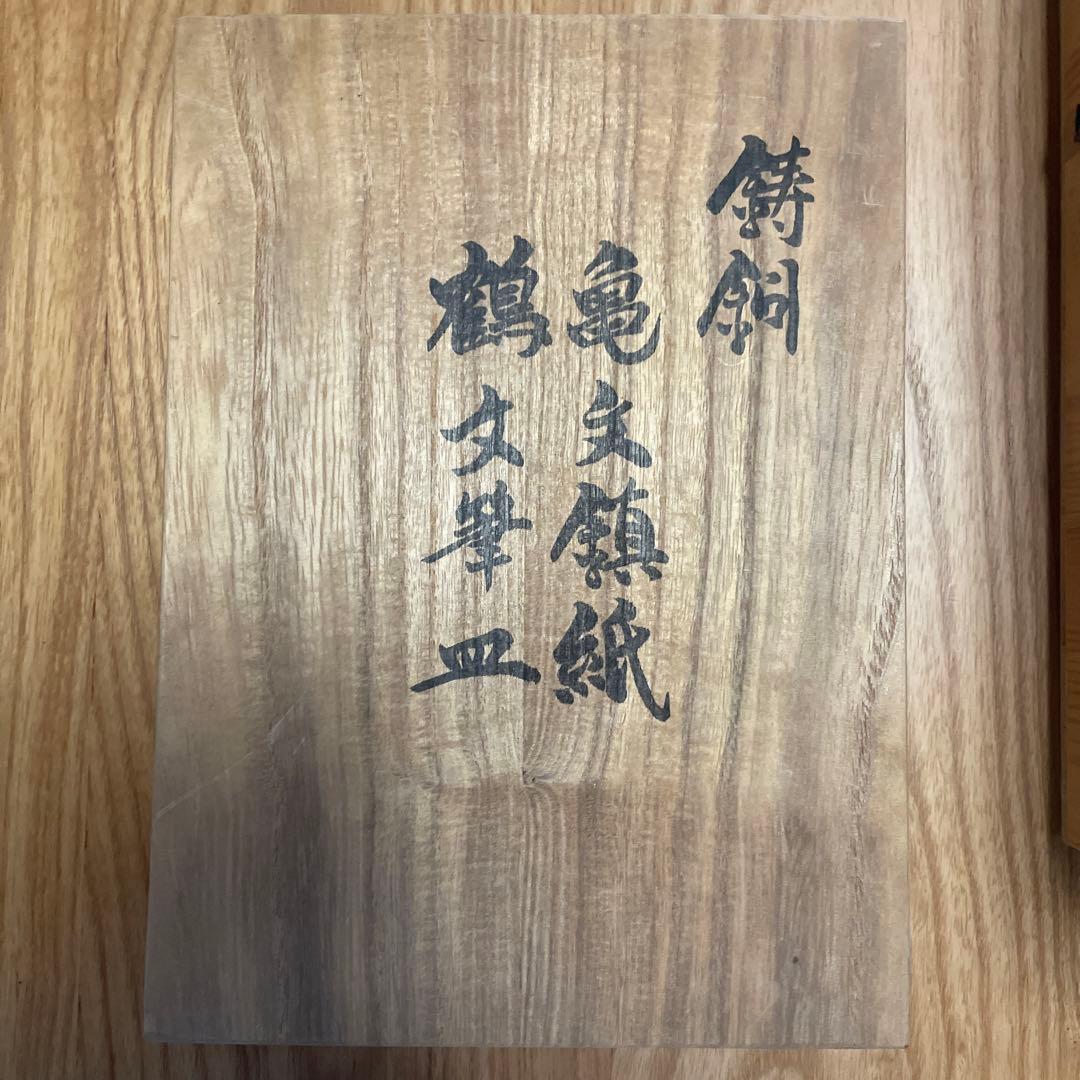 鋳銅
亀文鎮紙
鶴文筆皿